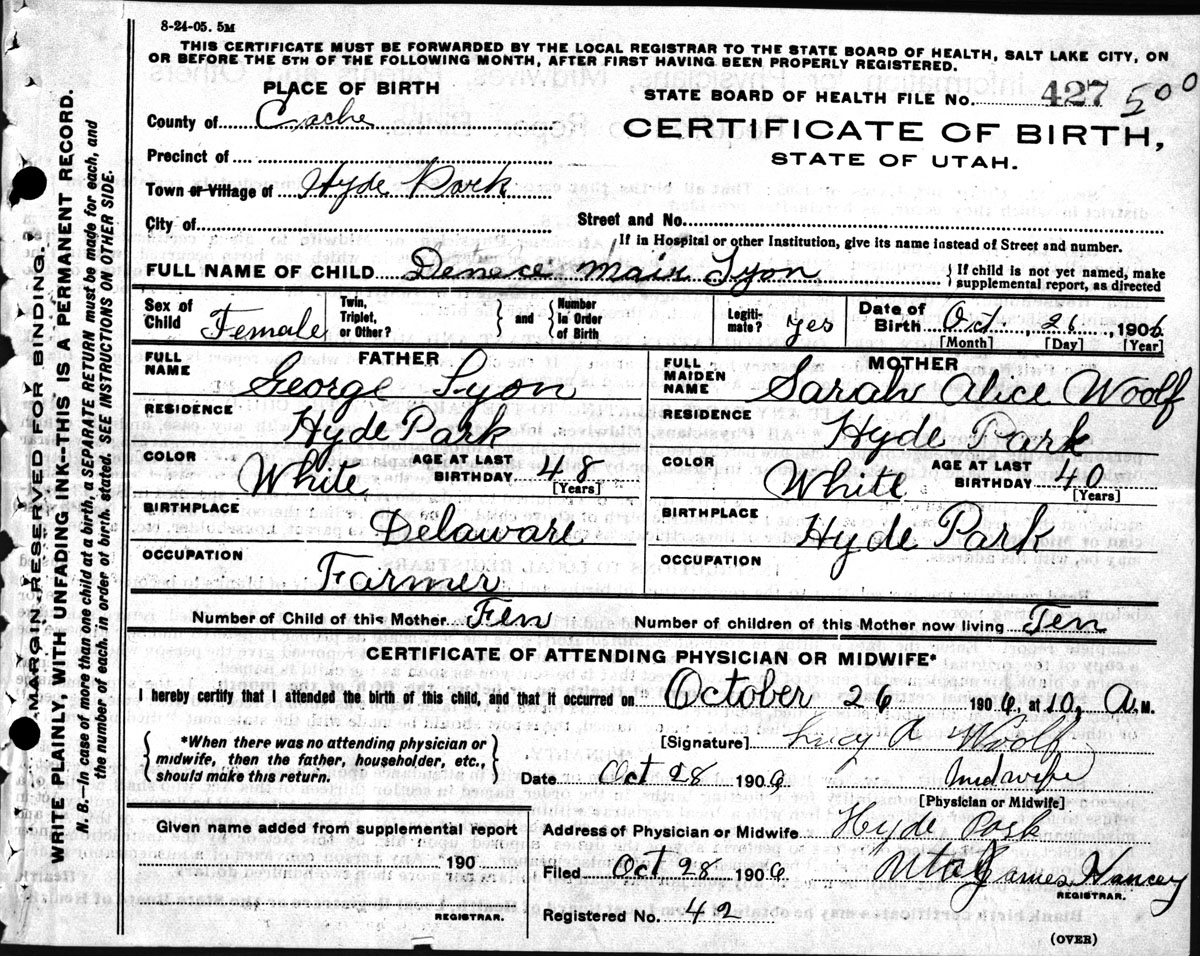 8-24-05. 5M
THIS CERTIFICATE MUST BE FORWARDED BY THE LOCAL REGISTRAR TO THE STATE BOARD OF HEALTH, SALT LAKE CITY, ON
OR BEFORE THE 5TH OF THE FOLLOWING MONTH, AFTER FIRST HAVING BEEN PROPERLY REGISTERED.
PLACE OF BIRTH
STATE BOARD OF HEALTH FILE No. 427 500
County of Cache
CERTIFICATE OF BIRTH,
STATE OF UTAH.
Precinct of
Town or Village of Hyde Park
City of
Street and No.
If in Hospital or other Institution, give its name instead of Street and number.
FULL NAME OF CHILD Denece Mair Lyon
{ If child is not yet named, make
supplemental report, as directed
Sex of Child Female
Twin, Triplet, or Other? } and { Number in Order of Birth
Legiti-mate? yes
Date of Birth Oct. 26, 1906
[Month] [Day] [Year]
FATHER
FULL NAME George Lyon
RESIDENCE Hyde Park
COLOR White
AGE AT LAST BIRTHDAY 48 [Years]
BIRTHPLACE Delaware
OCCUPATION Farmer
MOTHER
FULL MAIDEN NAME Sarah Alice Woolf
RESIDENCE Hyde Park
COLOR White
AGE AT LAST BIRTHDAY 40 [Years]
BIRTHPLACE Hyde Park
OCCUPATION
Number of Child of this Mother Ten
Number of children of this Mother now living Ten
CERTIFICATE OF ATTENDING PHYSICIAN OR MIDWIFE*
I hereby certify that I attended the birth of this child, and that it occurred on October 26 1906, at 10, A. M.
{ *When there was no attending physician or
midwife, then the father, householder, etc.,
should make this return. }
[Signature] Lucy A Woolf
Date Oct 28 1906 midwife
[Physician or Midwife]
Given name added from supplemental report
190
REGISTRAR.
Address of Physician or Midwife Hyde Park
Utah
Filed Oct 28 1906 James Hancey
REGISTRAR.
Registered No. 42
(OVER)
MARGIN RESERVED FOR BINDING.
WRITE PLAINLY, WITH UNFADING INK--THIS IS A PERMANENT RECORD.
N. B.--In case of more than one child at a birth, a SEPARATE RETURN must be made for each, and
the number of each, in order of birth, stated. SEE INSTRUCTIONS ON OTHER SIDE.